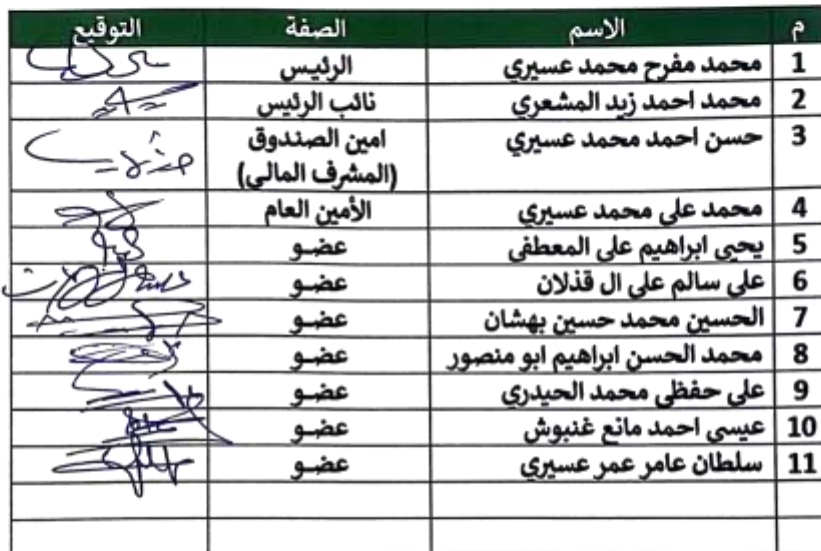 م الاسم الصفة التوقيع
1 محمد مفرح محمد عسيري الرئيس
2 محمد احمد زيد المشعري نائب الرئيس
3 حسن احمد محمد عسيري امين الصندوق
(المشرف المالي)
4 محمد علي محمد عسيري الأمين العام
5 يحيى ابراهيم علي المعطفي عضو
6 علي سالم علي ال قذلان عضو
7 الحسين محمد حسين بهشان عضو
8 محمد الحسن ابراهيم ابو منصور عضو
9 علي حفظي محمد الحيدري عضو
10 عيسى احمد مانع غنبوش عضو
11 سلطان عامر عمر عسيري عضو